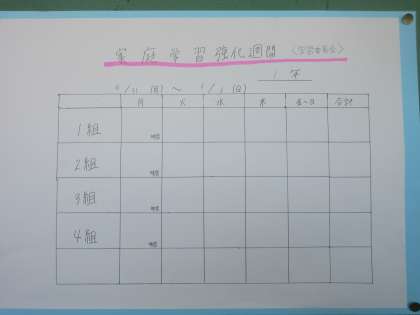 家庭学習強化週間 〈学習委員会〉
1年
月 火 水 木 金〜日 合計
1組
時間
2組
時間
3組
時間
4組
時間